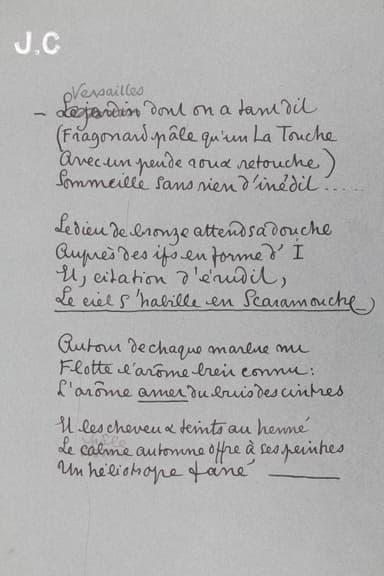 J,C
Versailles
– Le jardin dont on a tant dit
(Fragonard pâle qu'un La Touche
Avec un peu de roux retouche)
Sommeille sans rien d'inédit.....
Le dieu de bronze attend sa douche
Auprès des ifs en forme d' I
Et, citation d'érudit,
Le ciel s'habille en Scaramouche,
Autour de chaque marbre nu
Flotte l'arôme bien connu:
L'arôme amer du buis des cintres
Et les cheveux teints au henné
Le calme automne offre à ses peintres
Un héliotrope fané